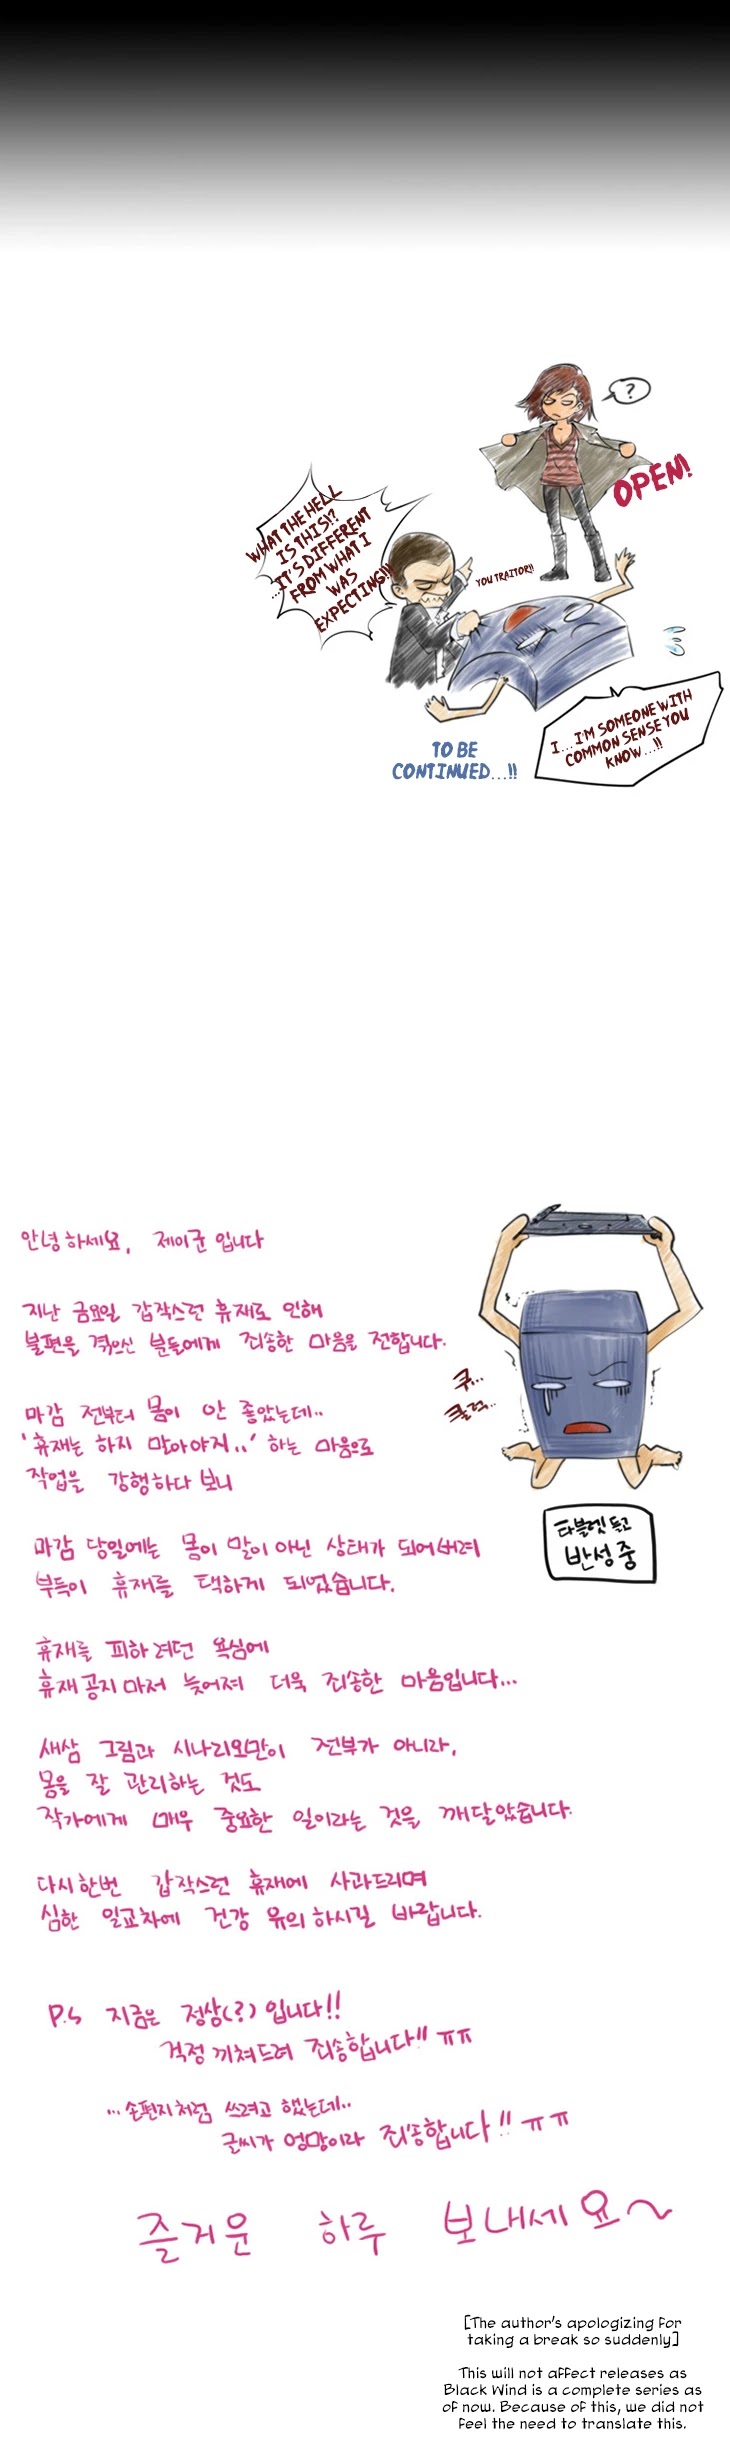 ?
OPEN!
WHAT THE HELL
IS THIS!?
...IT'S DIFFERENT
FROM WHAT I
WAS
EXPECTING!!
YOU TRAITOR!!
I...I'M SOMEONE WITH
COMMON SENSE YOU
KNOW...!!
TO BE
CONTINUED...!!
안녕하세요, 제이군입니다
지난 금요일 갑작스런 휴재로 인해
불편을 겪으신 분들에게 죄송한 마음을 전합니다.
쿠...
쿨럭..
마감 전부터 몸이 안 좋았는데..
'휴재는 하지 말아야지..' 하는 마음으로
작업을 강행하다 보니
타블렛 들고
반성중
마감 당일에는 몸이 말이 아닌 상태가 되어버려
부득이 휴재를 택하게 되었습니다.
휴재를 피하려던 욕심에
휴재공지마저 늦어져 더욱 죄송한 마음입니다...
새삼 그림과 시나리오만이 전부가 아니라,
몸을 잘 관리하는 것도
작가에게 매우 중요한 일이라는 것을 깨달았습니다.
다시한번 갑작스런 휴재에 사과드리며
심한 일교차에 건강 유의하시길 바랍니다.
P.S 지금은 정상(?)입니다!!
걱정끼쳐드려 죄송합니다!! ㅠㅠ
...손편지처럼 쓰려고 했는데..
글씨가 엉망이라 죄송합니다!! ㅠㅠ
즐거운 하루 보내세요~
[The author's apologizing for
taking a break so suddenly]
This will not affect releases as
Black Wind is a complete series as
of now. Because of this, we did not
feel the need to translate this.